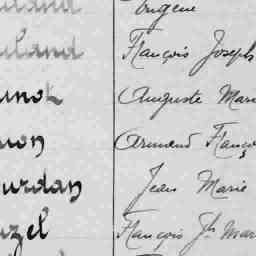 Eugène
uland François Joseph
Auguste Mari
Armand Franço
urdan Jean Marie
uzel François Jh Mar